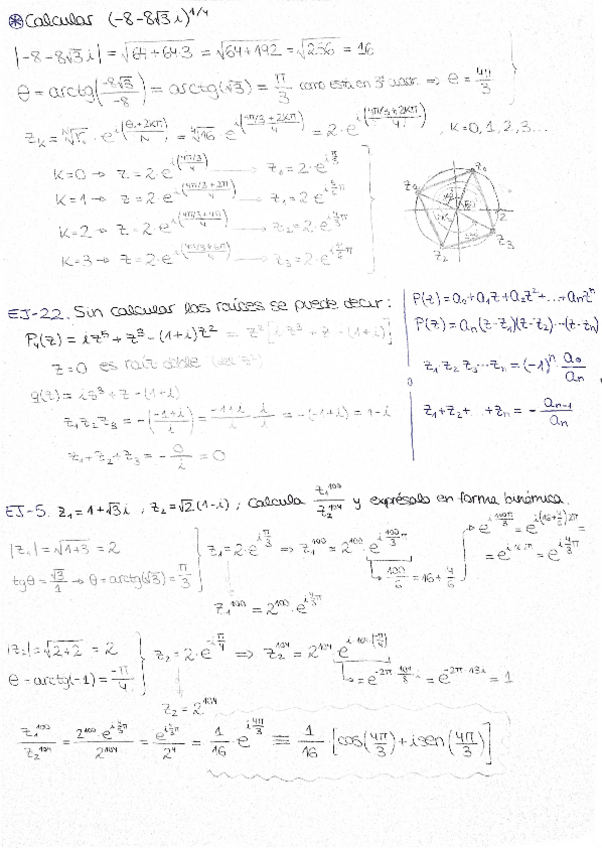 ⊛Calcular (-8-8√3 i)^1/4
|-8-8√3 i| = √(64+64·3) = √(64+192) = √256 = 16
θ = arctg(-8√3/-8) = arctg(√3) = π/3 como está en 3º cuadr. ⇒ θ = 4π/3
z_k = ᴺ√r · e^i((θ+2kπ)/N) = ⁴√16 · e^i((4π/3+2kπ)/4) = 2·e^i((4π/3+2kπ)/4), k=0,1,2,3...
k=0 → z=2·e^i((4π/3)/4) → z₁=2·e^i π/3
k=1 → z=2·e^i((4π/3+2π)/4) → z₁=2·e^i 5/6 π
k=2 → z=2·e^i((4π/3+4π)/4) → z₂=2·e^i 4/3 π
k=3 → z=2·e^i((4π/3+6π)/4) → z₃=2·e^i
z₀
z₀
2
z₃
z₂
EJ-22. Sin calcular las raíces se puede decir:
P₄(z) = iz⁵+z³-(1+i)z² = z²[iz³+z-(1+i)]
z=0 es raíz doble
q(z) = iz³+z-(1+i)
z₁z₂z₃ = -(-(1+i)/i) = (-1+i)/i · i/i = -(-1+i) = 1-i
z₁+z₂+z₃ = -0/i = 0
P(z)=a₀+a₁z+a₂z²+...+aₙzⁿ
P(z)=aₙ(z-z₁)(z-z₂)...(z-zₙ)
z₁z₂z₃...zₙ=(-1)ⁿ a₀/aₙ
z₁+z₂+...+zₙ = - aₙ₋₁/aₙ
EJ-5. z₁=1+√3i, z₂=√2(1-i); Calcula z₁¹⁰⁰/z₂¹⁰⁴ y exprésalo en forma binómica.
|z₁|=√(1+3)=2
tgθ=√3/1 → θ=arctg(√3)=π/3
z₁=2·e^i π/3 ⇒ z₁¹⁰⁰=2¹⁰⁰·e^i 100/3 π
100/6 = 16+4/6
e^i 100π/3 = e^i(16+4/6)2π =
= e^i 4/3 π
z₁¹⁰⁰=2¹⁰⁰·e^i 4/3 π
|z₂|=√(2+2)=2
θ=arctg(-1)=-π/4
z₂=2·e^-i π/4 ⇒ z₂¹⁰⁴=2¹⁰⁴·e^i·104·(-π/4)
= e^-2π 104/8 i = e^-2π·13i = 1
z₂=2¹⁰⁴
z₁¹⁰⁰/z₂¹⁰⁴ = 2¹⁰⁰·e^i 4/3 π / 2¹⁰⁴ = e^i 4/3 π / 2⁴ = 1/16 · e^i 4π/3 ≡ 1/16 [cos(4π/3)+isen(4π/3)]